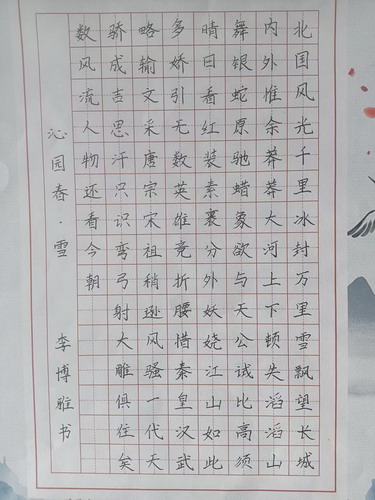 北国风光千里冰封万里雪飘望长城
内外惟余莽莽大河上下顿失滔滔山
舞银蛇原驰蜡象欲与天公试比高须
晴日看红装素裹分外妖娆江山如此
多娇引无数英雄竞折腰惜秦皇汉武
略输文采唐宗宋祖稍逊风骚一代天
骄成吉思汗只识弯弓射大雕俱往矣
数风流人物还看今朝
沁园春·雪 李博雅书